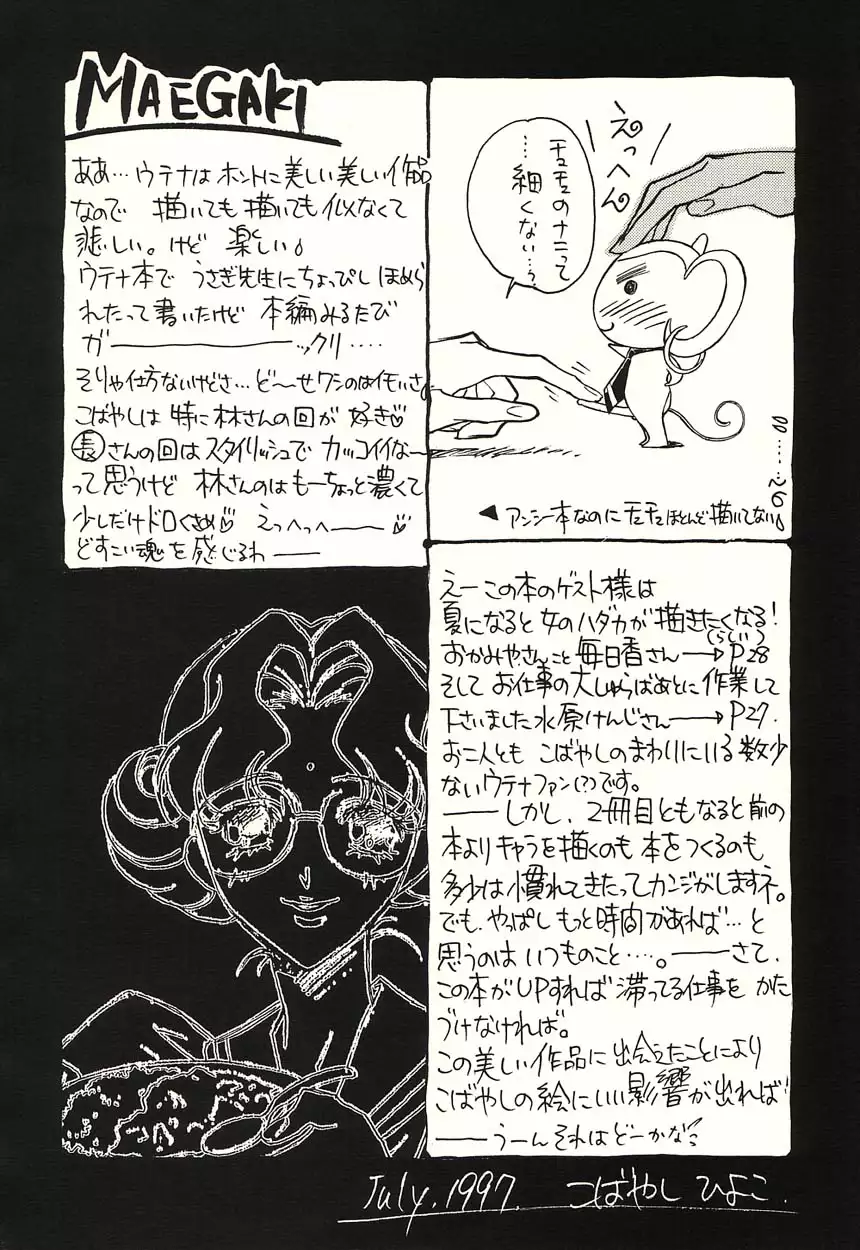 MAEGAKI
ああ…ウテナはホントに美しい美しい作品
なので 描いても描いても似なくて
悲しい。けど 楽しい♪
ウテナ本で うさぎ先生にちょっぴし ほめら
れたって書いたけど 本編みるたび
ガ――――――ックリ‥‥
そりゃ仕方ないけどさ…ど〜せワシのはイモいさ。
こばやしは 特に林さんの回が 好き♡
長さんの回はスタイリッシュで カッコイイな〜
って思うけど 林さんのはもーちょっと濃くて
少しだけドロくさめ♡ えっへっへ――♡
どすこい魂を感じるわ――
えっへん
チュチュのナニって
…細くない…?
◀アンシー本なのにチュチュほとんど描いてない♪
えー この本のゲスト様は
夏になると 女のハダカが 描きたくなる!
おかみやさんこと 毎日香さん―→P28
そして お仕事の大しゅらばあとに 作業して
下さいました 水原けんじさん―→P27.
お二人とも こばやしのまわりにいる 数少
ないウテナファン(?)です。
――しかし、2冊目ともなると前の
本よりキャラを描くのも 本をつくるのも
多少は慣れてきたってカンジがしますネ。
でも、やっぱし もっと時間があれば…と
思うのは いつものこと‥‥。――さて、
この本がUPすれば 滞ってる仕事を かた
づけなければ。
この美しい作品に 出会えたことにより
こばやしの絵にいい影響が出れば!
――うーん それはどーかな?
July.1997. こばやし ひよこ.